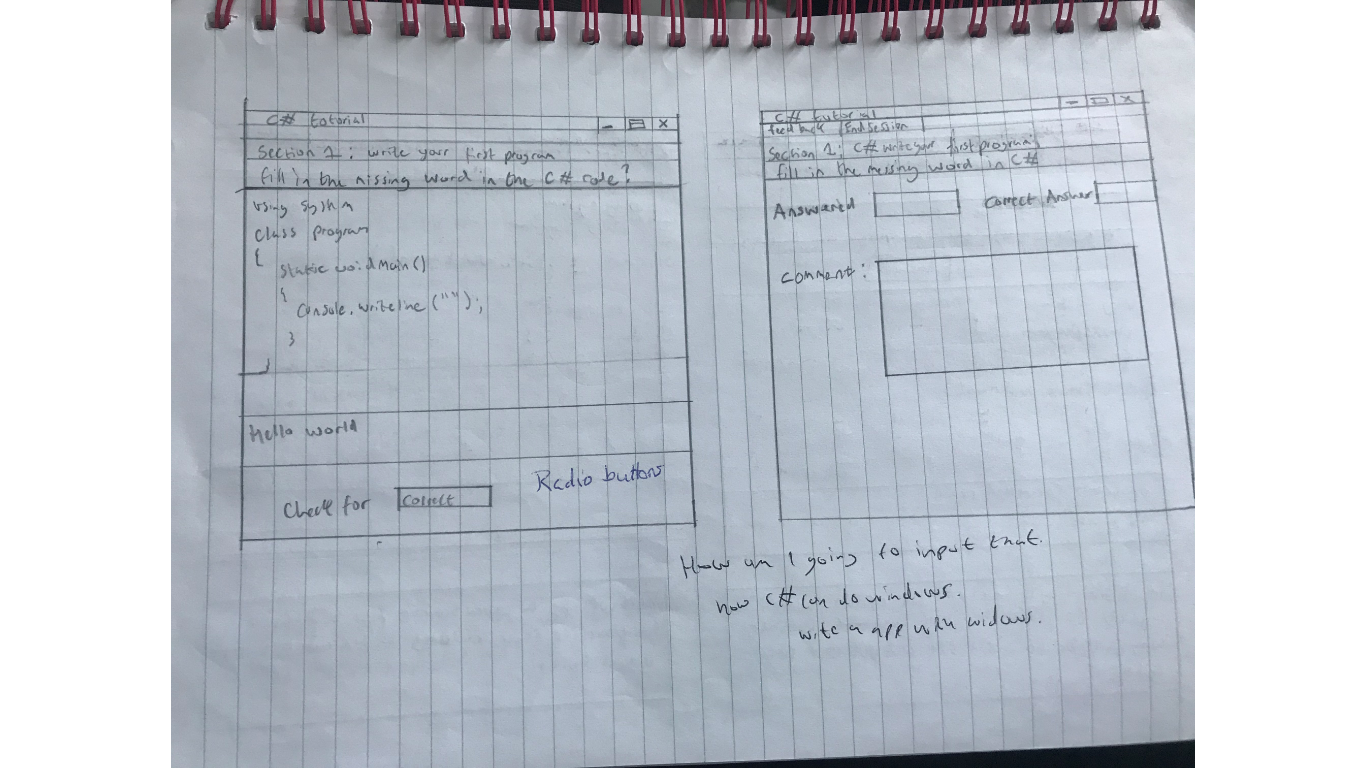 C# tutorial
Section 1: write your first program
fill in the missing word in the C# code?
using System
class program
{
static void Main()
{
Console.writeline ("");
}
}
Hello world
Check for correct
Radio buttons
C# tutorial
feed back End Session
Section 1: C# write your first program
fill in the missing word in C#
Answared Correct Answer
Comment:
How am I going to input that.
how C# can do windows.
write a app with widows.